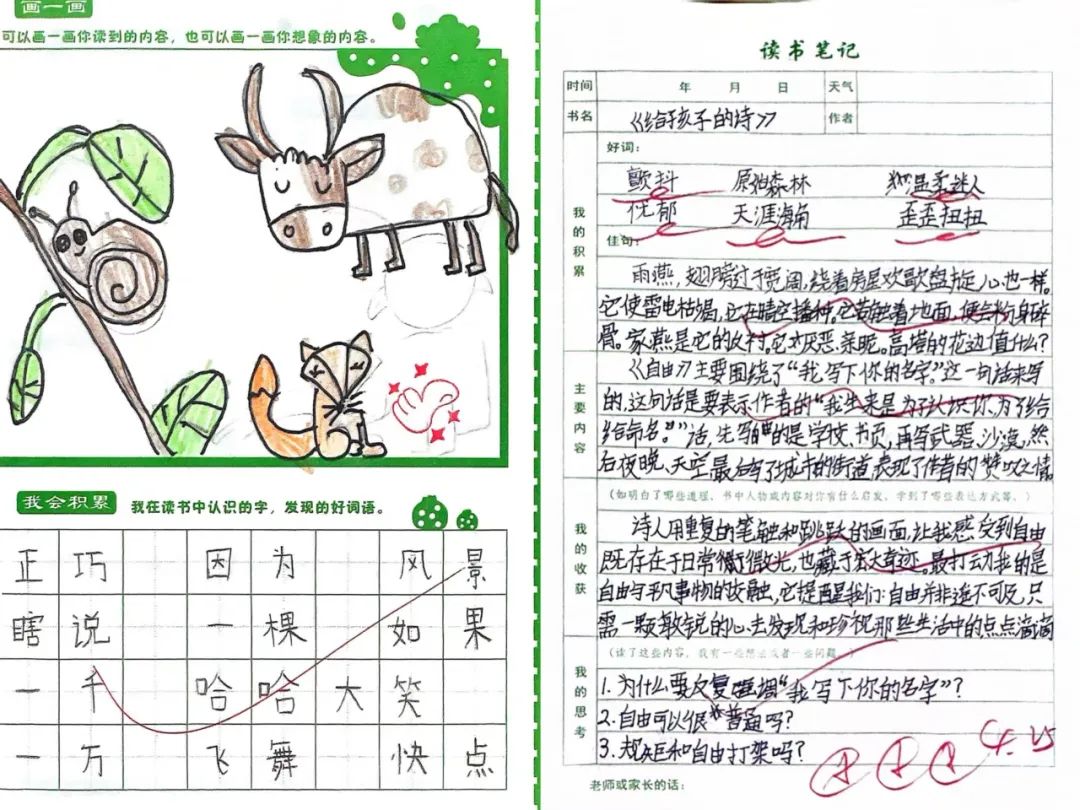 画一画
可以画一画你读到的内容，也可以画一画你想象的内容。
我会积累 我在读书中认识的字，发现的好词语。
正巧 因为 风景
瞎说 一棵 如果
一千 哈哈大笑
一万 飞舞 快点
读书笔记
时间 年 月 日 天气
书名 《给孩子的诗》 作者
我的积累
好词：
颤抖 原始森林 温柔迷人
忧郁 天涯海角 歪歪扭扭
佳句：
雨燕，翅膀过于宽阔，绕着房屋欢歌盘旋，心也一样。
它使雷电枯竭，它在晴空播种。它若触着地面，便会粉身碎
骨。家燕是它的反衬。它厌恶亲昵。高塔的花边值什么？
主要内容
《自由》主要围绕了“我写下你的名字。”这一句话来写
的，这句话是要表示作者的“我生来是为了认识你，为了给
给命名。”话，先写的是学校、书页，再写武器、沙漠，然
后夜晚、天空，最后写了城市的街道，表现了作者的赞叹之情。
我的收获
（如明白了哪些道理、书中人物或内容对你有什么启发、学到了哪些表达方式等。）
诗人用重复的笔触和跳跃的画面，让我感受到自由
既存在于日常微光，也藏于宏大奇迹。最打动我的是
自由与平凡事物的交融，它提醒我们：自由并非遥不可及，只
需一颗敏锐的心，去发现和珍视那些生活中的点点滴滴
我的思考
（读了这些内容，我有一些想法或者一些问题。）
1.为什么要反复强调“我写下你的名字”？
2.自由可以很“普通”吗？
3.规矩和自由打架吗？
老师或家长的话：